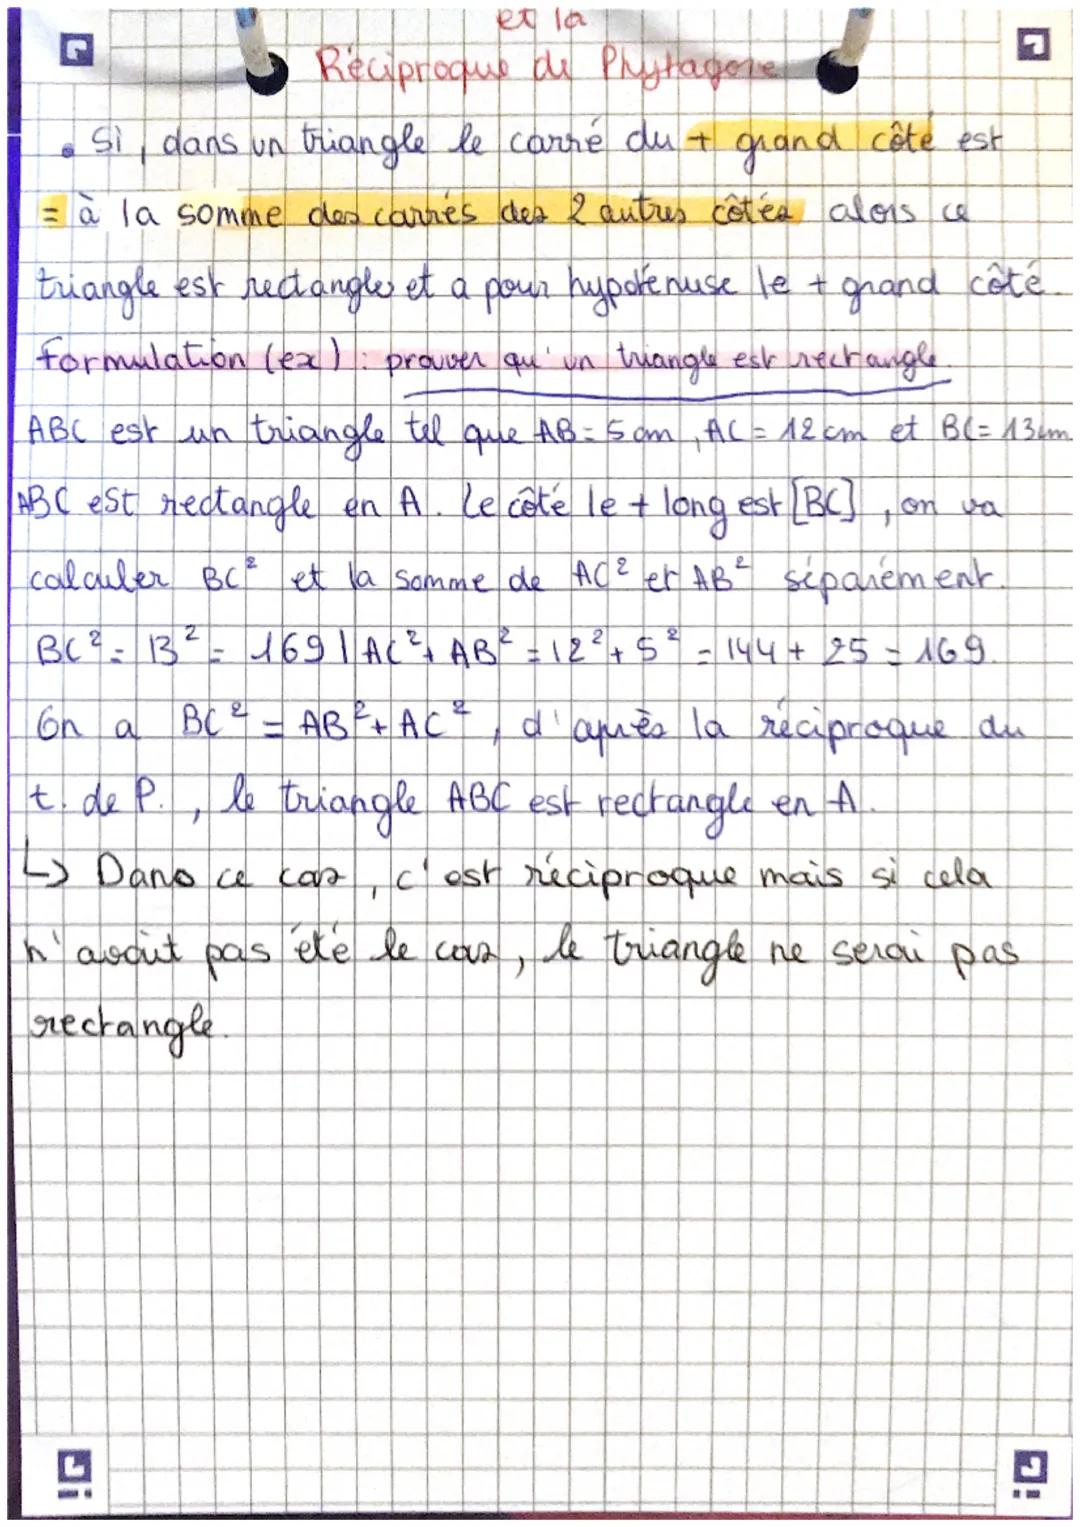 et la
Réciproque de Phytagore
• Si, dans un triangle le carré du + grand côté est
= à la somme des carrés des 2 autres côtés alors ce
triangle est rectangle et a pour hypoténuse le + grand côté.
Formulation (ex) : prouver qu'un triangle est rectangle.
ABC est un triangle tel que AB = 5 cm, AC = 12 cm et BC = 13 cm
ABC est rectangle en A. Le côté le + long est [BC], on va
calculer BC² et la somme de AC² et AB² séparément.
BC² = 13² = 169 | AC² + AB² = 12² + 5² = 144 + 25 = 169.
On a BC² = AB² + AC², d'après la réciproque du
t. de P., le triangle ABC est rectangle en A.
↳ Dans ce cas, c'est réciproque mais si cela
n'avait pas été le cas, le triangle ne serai pas
rectangle.